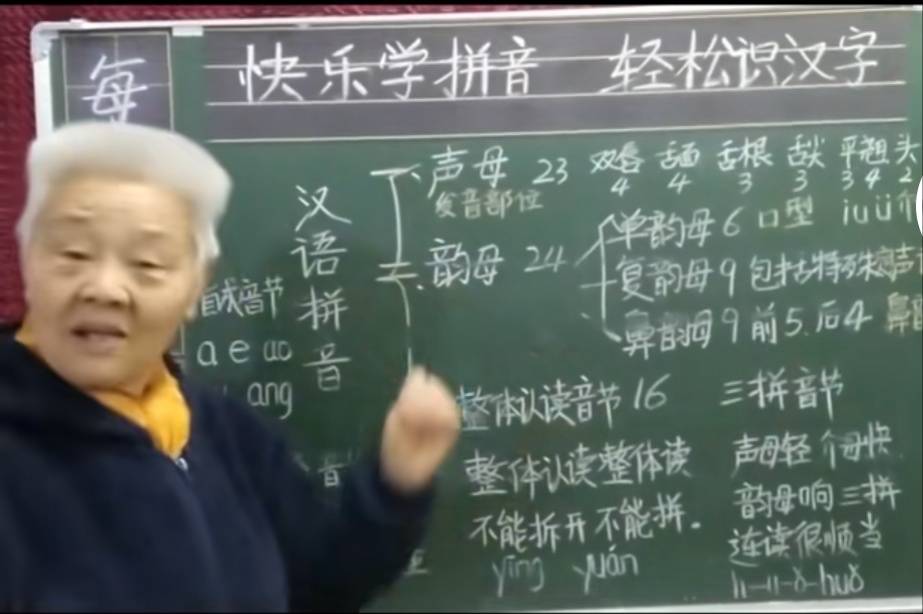 每
快乐学拼音 轻松识汉字
汉语拼音
声母 23 双唇4 舌面4 舌根3 舌尖3 平3翘4 头2
发音部位
韵母 24
单韵母 6 口型 iuü
复韵母 9 包括特殊
鼻韵母 9 前5.后4
自成音节
a e ao
ang
音
整体认读音节 16
整体认读整体读
不能拆开不能拼.
yīng yuán
三拼音节
声母轻 介母快
韵母响三拼
连读很顺当